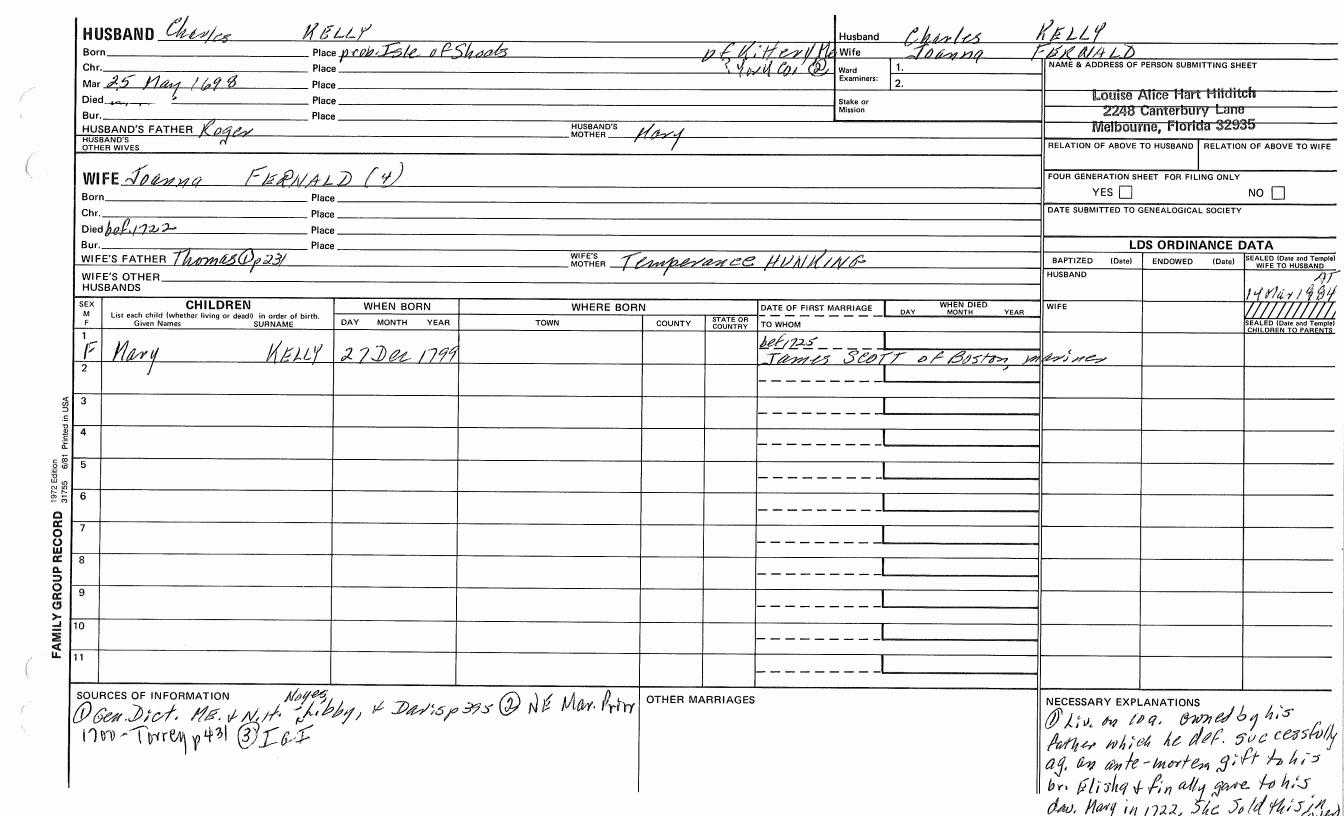 HUSBAND Charles KELLY
Born Place prob. Isle of Shoals of Kittery Me
Chr. Place York Co. ②
Mar 25 May 1698 Place
Died Place
Bur. Place
HUSBAND'S FATHER Roger HUSBAND'S MOTHER Mary
HUSBAND'S OTHER WIVES
Husband Charles KELLY
Wife Joanna FERNALD
Ward Examiners: 1.
2.
Stake or Mission
NAME & ADDRESS OF PERSON SUBMITTING SHEET
Louise Alice Hart Hilditch
2248 Canterbury Lane
Melbourne, Florida 32935
RELATION OF ABOVE TO HUSBAND RELATION OF ABOVE TO WIFE
FOUR GENERATION SHEET FOR FILING ONLY
YES NO
DATE SUBMITTED TO GENEALOGICAL SOCIETY
WIFE Joanna FERNALD (4)
Born Place
Chr. Place
Died bef. 1722 Place
Bur. Place
WIFE'S FATHER Thomas ① p231 WIFE'S MOTHER Temperance HUNKING
WIFE'S OTHER HUSBANDS
LDS ORDINANCE DATA
BAPTIZED (Date) ENDOWED (Date) SEALED (Date and Temple) WIFE TO HUSBAND
HUSBAND AT
14 Mar 1984
WIFE
SEALED (Date and Temple) CHILDREN TO PARENTS
SEX M F
CHILDREN
List each child (whether living or dead) in order of birth.
Given Names SURNAME
WHEN BORN
DAY MONTH YEAR
WHERE BORN
TOWN COUNTY STATE OR COUNTRY
DATE OF FIRST MARRIAGE
TO WHOM
WHEN DIED
DAY MONTH YEAR
1 bef 1725
F Mary KELLY 27 Dec 1799 James SCOTT of Boston, mariner
2
3
4
5
6
7
8
9
10
11
FAMILY GROUP RECORD
1972 Edition
31755 6/81 Printed in USA
SOURCES OF INFORMATION
① Gen. Dict. ME. & N.H. Noyes, Libby, & Davis p 395 ② NE Mar. Prior
1700 - Torrey p 431 ③ IGI
OTHER MARRIAGES
NECESSARY EXPLANATIONS
① Liv. on 10a. owned by his
father which he def. successfully
ag. an ante-mortem gift to his
br. Elisha & finally gave to his
dau. Mary in 1722. She sold this in